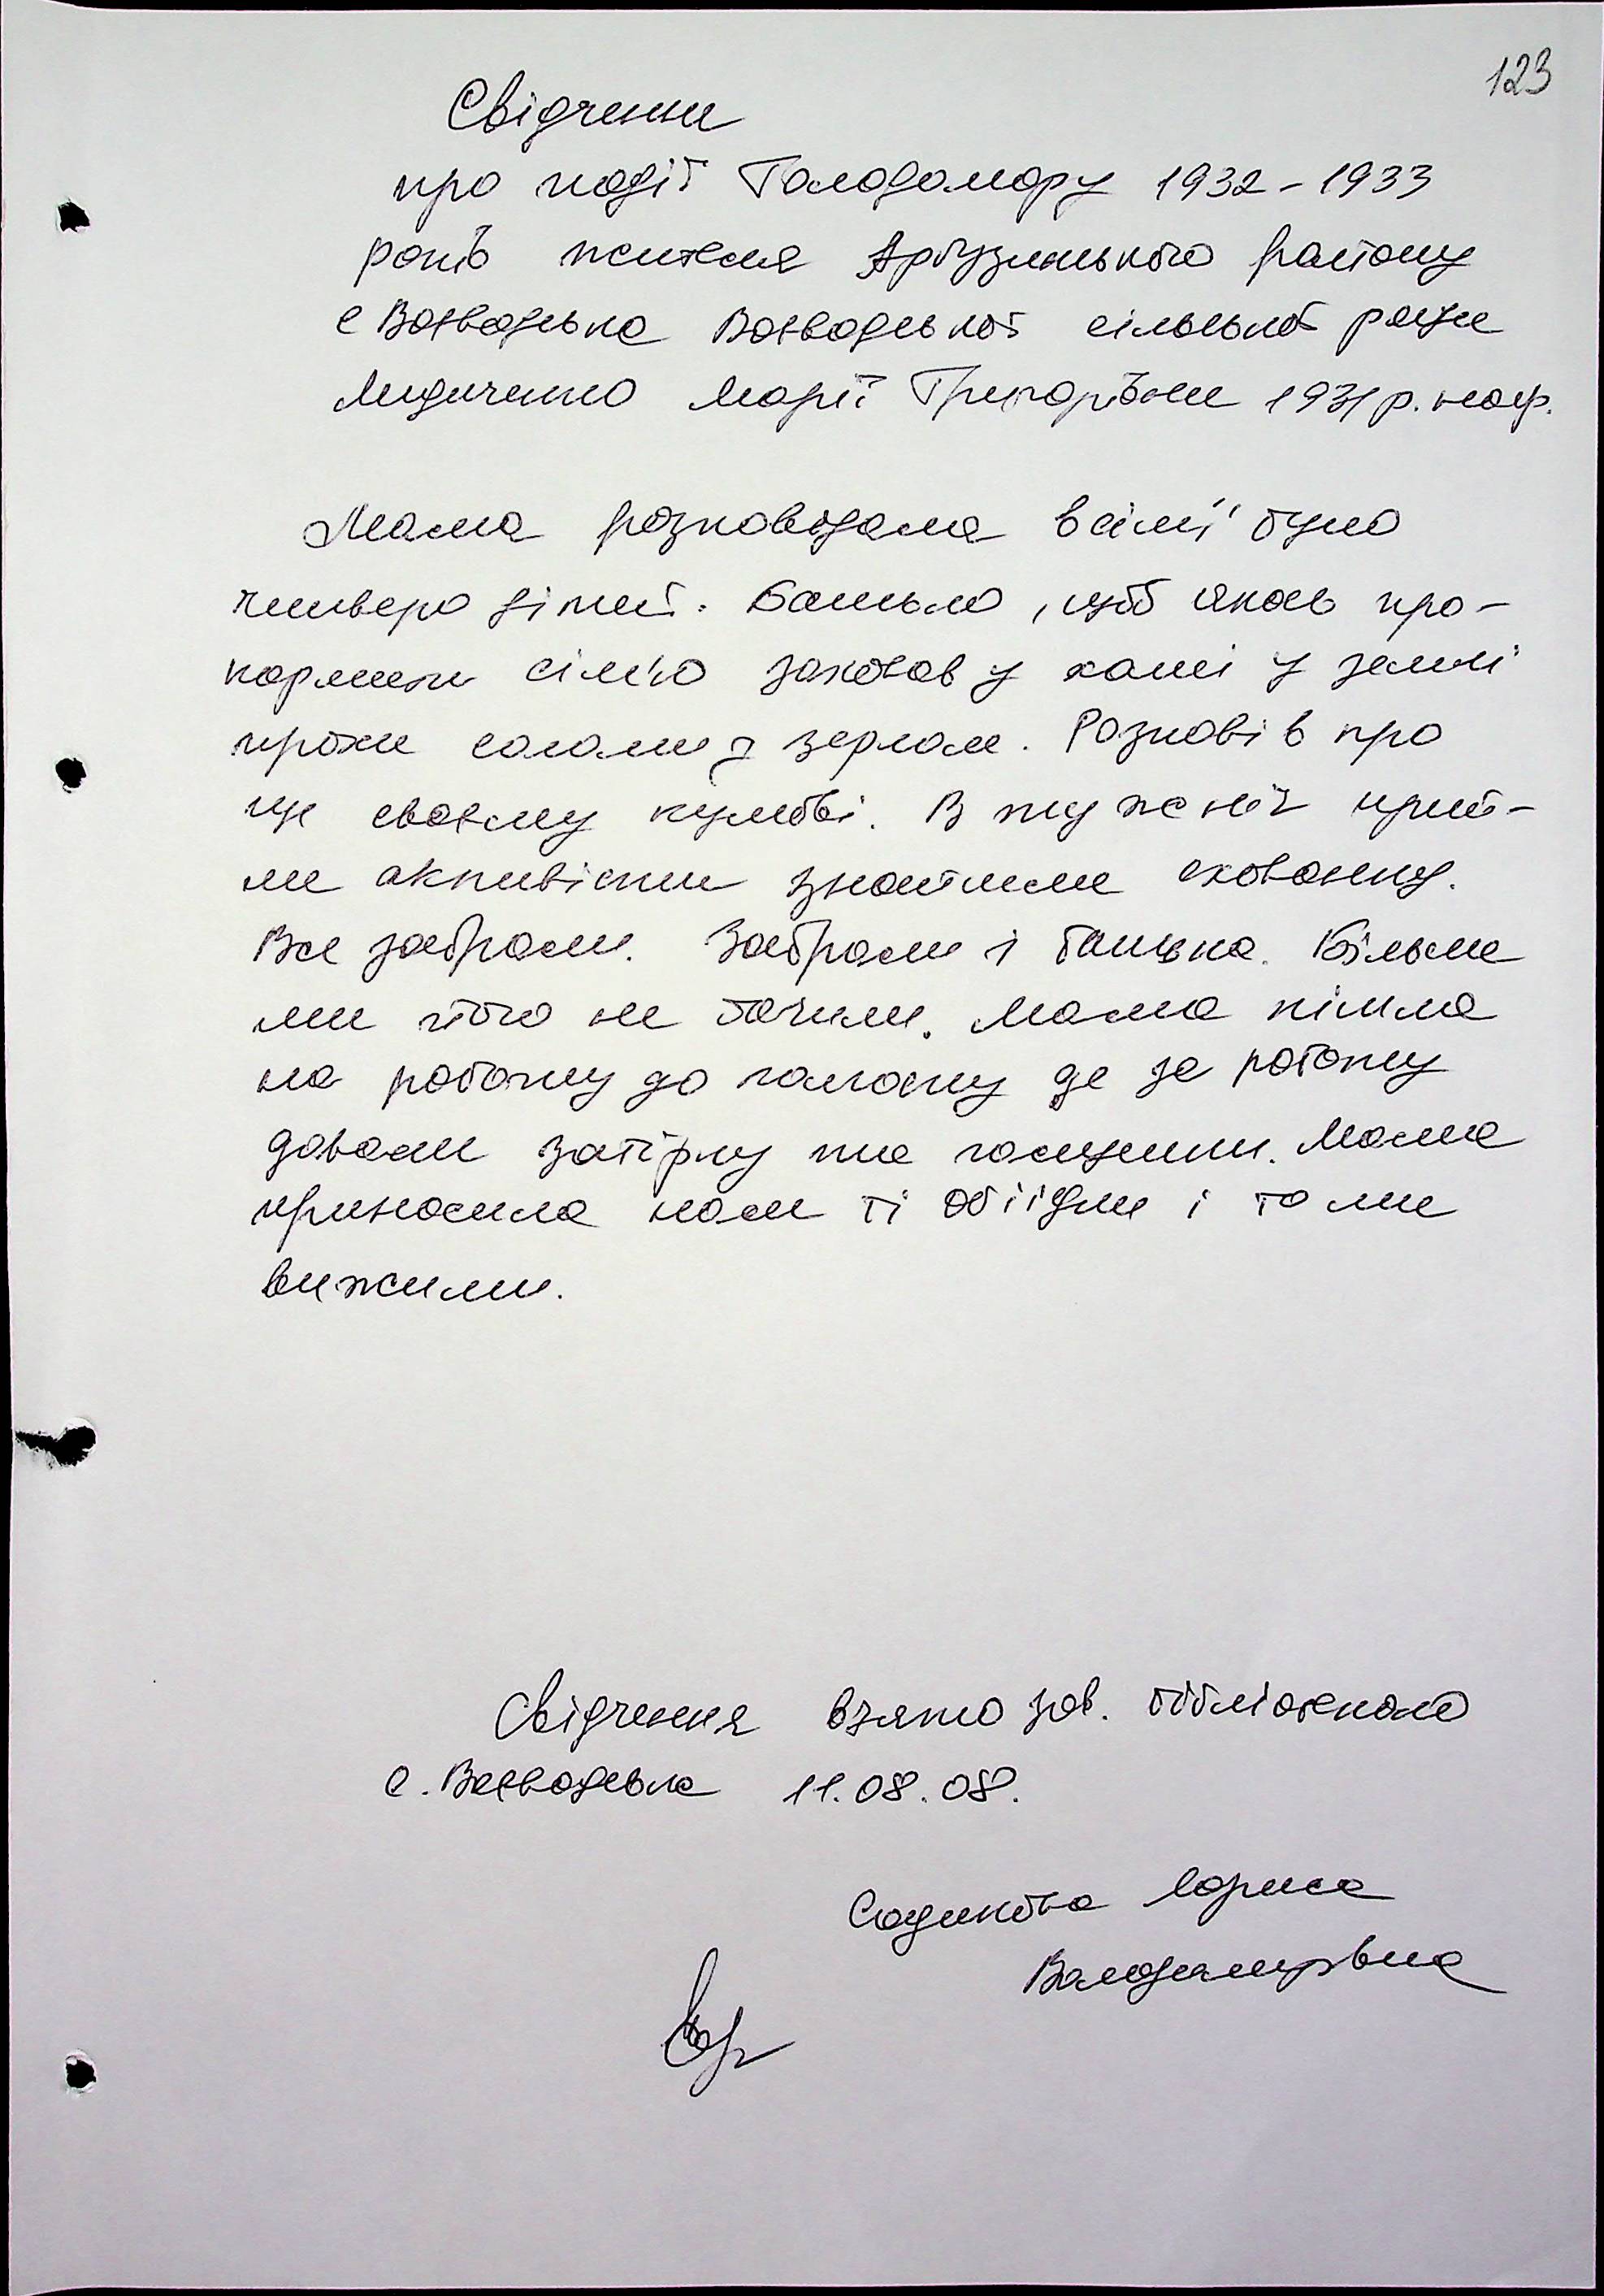 123
Свідчення
про події Голодомору 1932-1933
років жителя Арбузинського району
с Воєводське Воєводської сільської ради
Марії Григорівни 1931 р. нар.
Мама розповідала в сім'ї було
четверо дітей. Батько, щоб якось про-
кормити сім'ю заховав у хаті у землі
трохи соломи з зерном. Розповів про
це своєму кумові. В ту же ніч прий-
ли активісти знайшли схованку.
Все забрали. Забрали і батька. Більше
ми його не бачили. Мама пішла
на роботу до колгоспу де за роботу
давали затірку та галушки. Мама
приносила нам ті обіїдки і то ми
вижили.
Свідчення взято зав. бібліотекою
с. Воєводське 11.08.08.
Садикова Лариса
Володимирівна